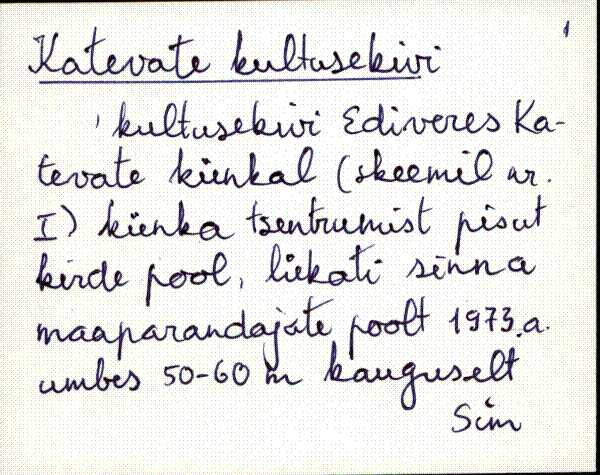 1
Katevate kultusekivi
kultusekivi Ediveres Ka-
tevate künkal (skeemil nr.
I) künka tsentrumist pisut
kirde pool, liikati sinna
maaparandajate poolt 1973.a.
umbes 50-60 m kauguselt
Siin